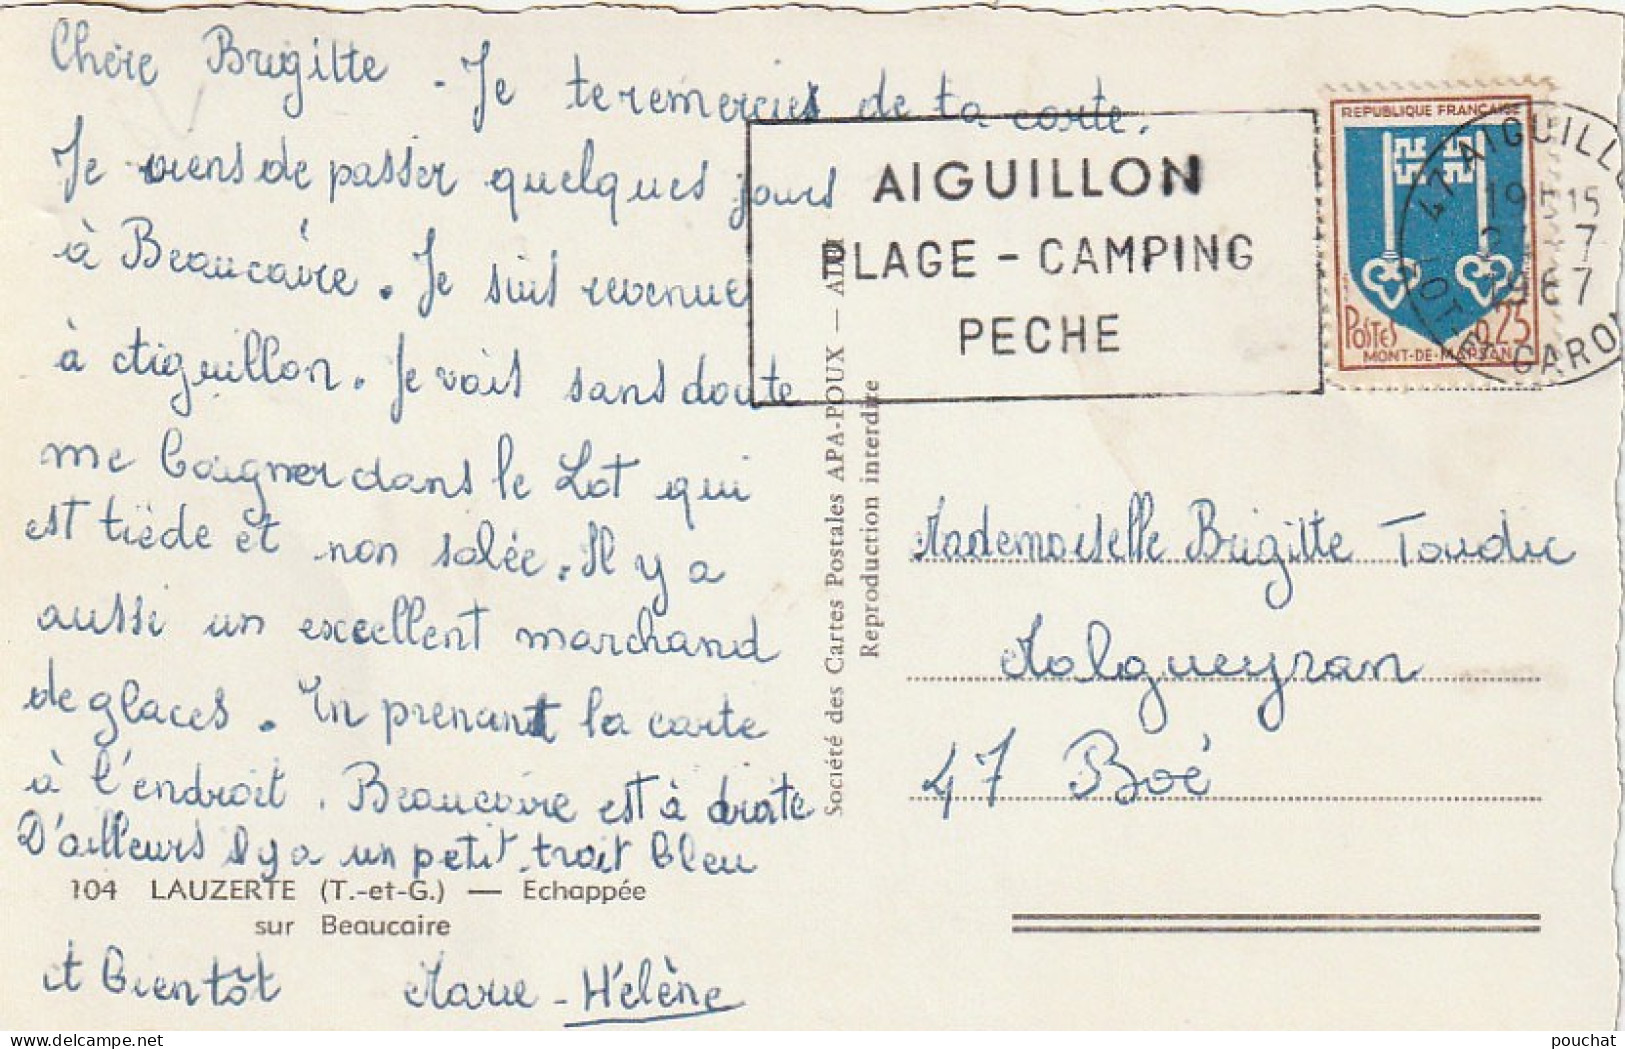 Chère Brigitte . Je te remercies de ta carte.
Je viens de passer quelques jours
à Beaucaire . Je suis revenue
à Aiguillon. Je vais sans doute
me baigner dans le Lot qui
est tiède et non salée . Il y a
aussi un excellent marchand
de glaces . En prenant la carte
à l'endroit . Beaucaire est à droite
D'ailleurs il y a un petit trait bleu
104 LAUZERTE (T.-et-G.) — Echappée
sur Beaucaire
A bientôt Marie - Hélène
Société des Cartes Postales APA-POUX —
Reproduction interdite
AIGUILLON
PLAGE - CAMPING
PECHE
REPUBLIQUE FRANÇAISE
POSTES 0,25
MONT-DE-MARSAN
47 AIGUILLO
19 15
7
1967
LOT-ET-GARON
Mademoiselle Brigitte Toudic
Malgueyran
47 Boé
pouchat